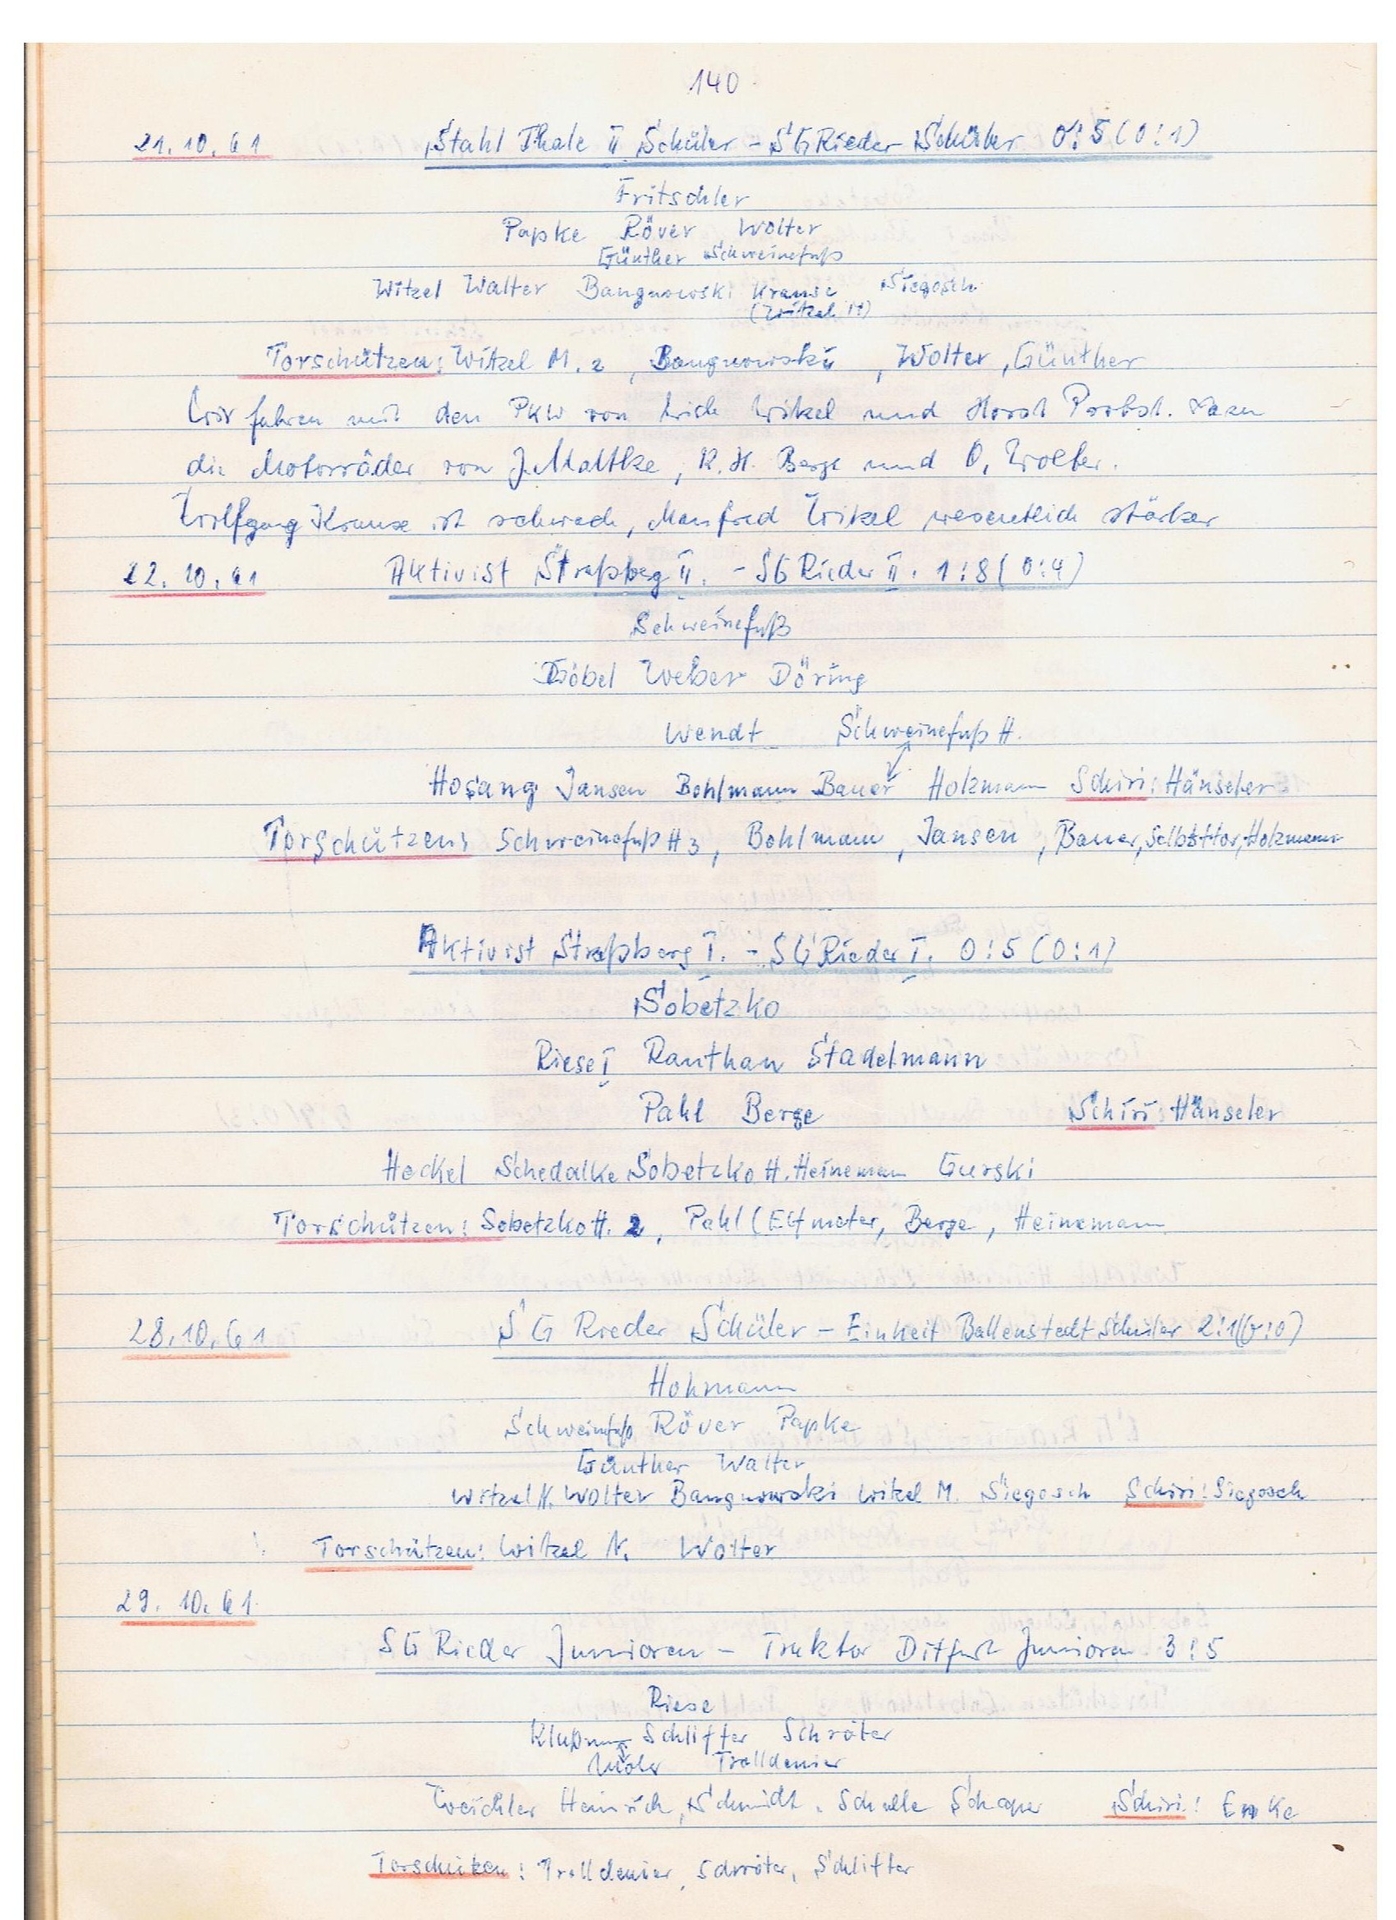 140
21.10.61 Stahl Thale II Schüler - SG Rieder Schüler 0:5 (0:1)
Fritschler
Papke Röver Wolter
Günther Schweinefuß
Witzel Walter Bangnowski Krause Siegosch
(Witzel M)
Torschützen: Witzel M. 2, Bangnowski, Wolter, Günther
Wir fuhren mit den PKW von Witzel und Horst Probst.
die Motorräder von J. Maltke, K. H. Berge und O. Wolter.
Wolfgang Krause ist schwach, Manfred Witzel wesentlich stärker
22.10.61 Aktivist Straßberg II. - SG Rieder II. 1:8 (0:4)
Schweinefuß
Döbel Weber Döring
Wendt Schweinefuß H.
Hosang Jansen Bohlmann Bauer Holzmann Schiri: Hänseler
Torschützen: Schweinefuß H 3, Bohlmann, Jansen, Bauer, Selbsttor, Holzmann
Aktivist Straßberg I. - SG Rieder I. 0:5 (0:1)
Sobetzko
Riese I Ranthan Stadelmann
Pahl Berge Schiri Hänseler
Heckel Schedalke Sobetzko H. Heineman Gurski
Torschützen: Sobetzko H. 2, Pahl (Elfmeter, Berge, Heinemann
28.10.61 SG Rieder Schüler - Einheit Ballenstedt Schüler 2:1
Hohmann
Schweinefuß Röver Papke
Günther Walter
Witzel N. Wolter Bangnowski Witzel M. Siegosch Schiri: Siegosch
Torschützen: Witzel N. Wolter
29.10.61
SG Rieder Junioren - Traktor Ditfurt Junioren 3:5
Riese
Schliffer Schröter
Trolldenier
Weichler Heinrich, Schmidt, Schulle Schaper Schiri: Enke
Torschützen: Trolldenier, Schröter, Schlifter